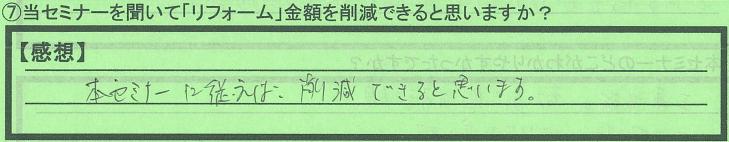 ⑦当セミナーを聞いて「リフォーム」金額を削減できると思いますか？
【感想】
本セミナーに従えば、削減できると思います。